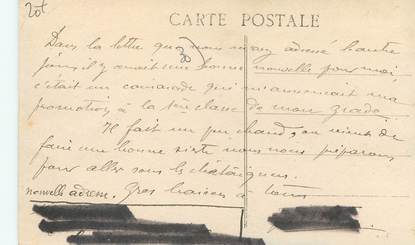 20t
CARTE POSTALE
Dans la lettre que vous m'avez adressé l'autre
jour, il y avait une bonne nouvelle pour moi
c'était un camarade qui m'annonçait ma
promotion à la 1ère classe de mon grade
Il fait un peu chaud, on vient de
faire une bonne sieste nous nous préparons
pour aller sous les châtaigners.
nouvelle adresse. Gros baisers à tous